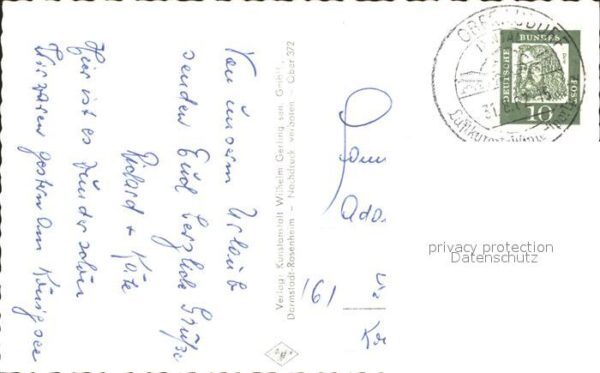 Von unserm Urlaub
senden Euch herzliche Grüße
Richard + Käte
Hier ist es wunderschön
Wir waren gestern am Königsee
Verlag: Kunstanstalt Wilhelm Gerling sen. GmbH,
Darmstadt-Rosenheim – Nachdruck verboten. Ober 372
161
OBERAUDORF
31.
Luftkurort
DEUTSCHE BUNDESPOST
10
privacy protection
Datenschutz